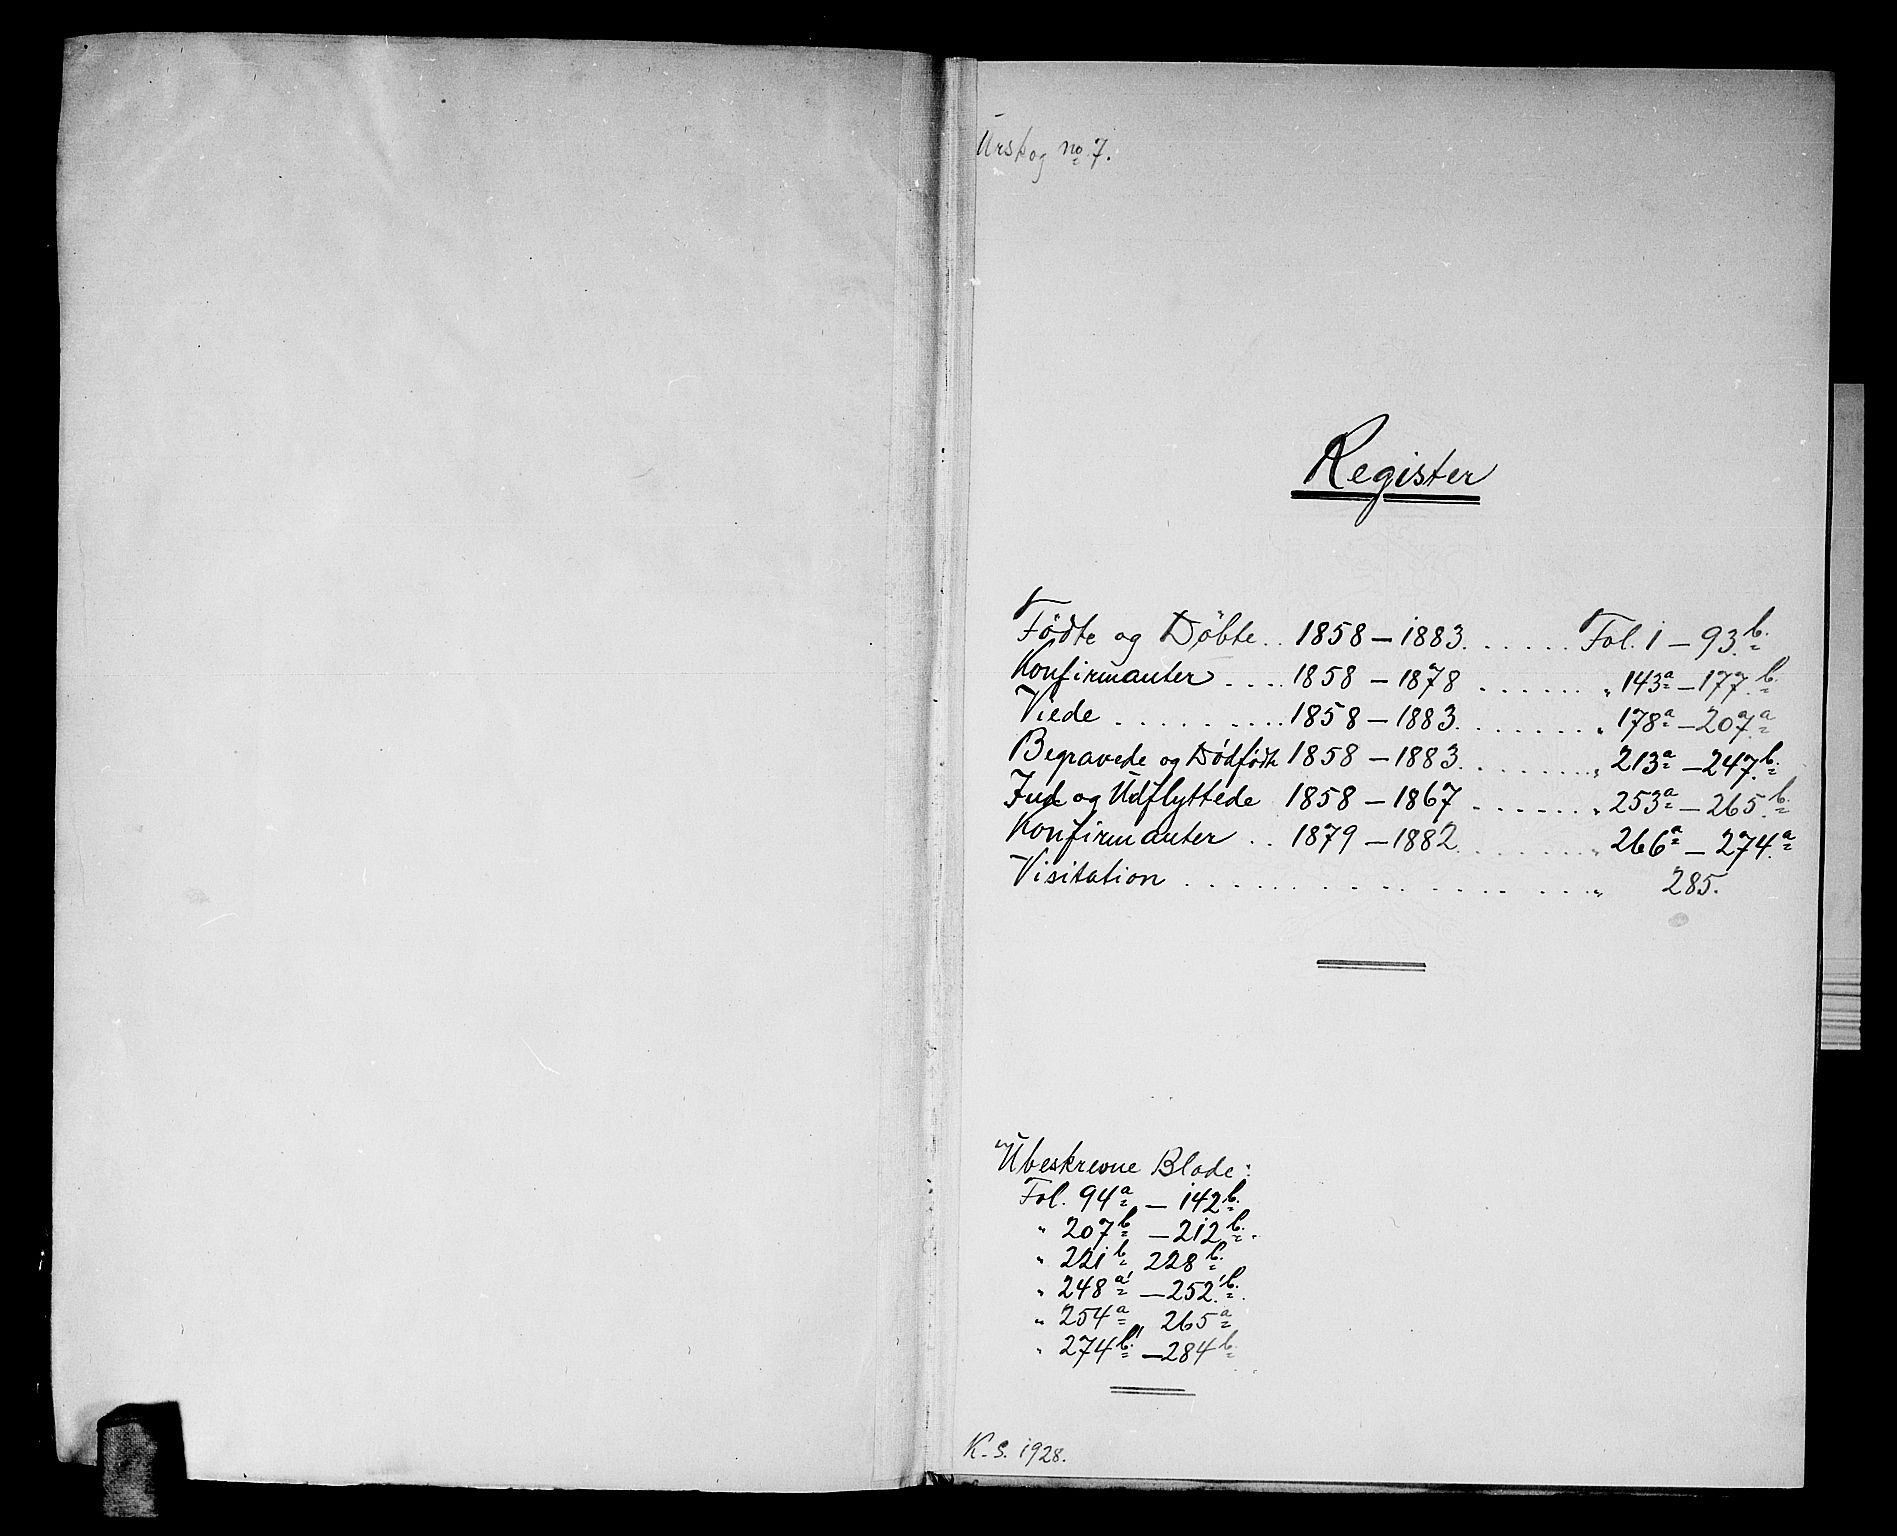 Urskog no 7.
Register
Fødte og Döbte .. 1858 – 1883. . . . . . . Fol. 1 – 93.b.
Konfirmanter . . . . 1858 – 1878 . . . . . . . „ 143a – 177.b.
Viede . . . . . . . . . . 1858 – 1883. . . . . . . . . „ 178a – 207.a
Begravede og Dødfødte 1858 – 1883. . . . . . . . . „ 213a – 247.b.
Ind og Udflyttede 1858 – 1867 . . . . . . . „ 253a – 265.b.
Konfirmanter . . 1879 – 1882. . . . . . . . . „ 266a – 274.a
Visitation . . . . . . . . . . . . . . . . . . . . „ 285.
Ubeskrevne Blade:
Fol. 94a – 142b.
„ 207b – 212b.
„ 221b, 228b.
„ 248a – 252.b.
„ 254a, 265a
„ 274b. – 284b.
K. S. 1928.